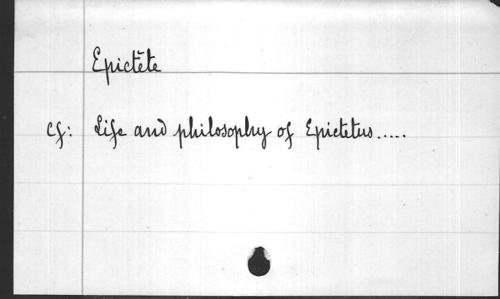 Epictète
cf: Life and philosophy of Epictetus.....